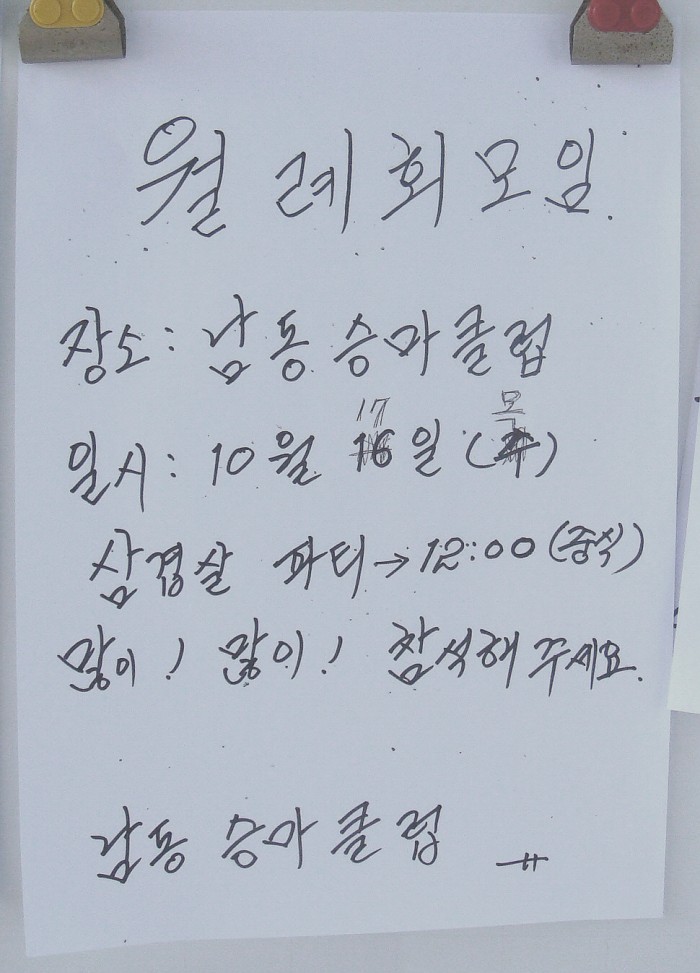 월례회모임.
장소: 남동 승마클럽
일시: 10월 17일 (목)
삼겹살 파티→12:00 (중식)
많이! 많이! 참석해 주세요.
남동 승마클럽